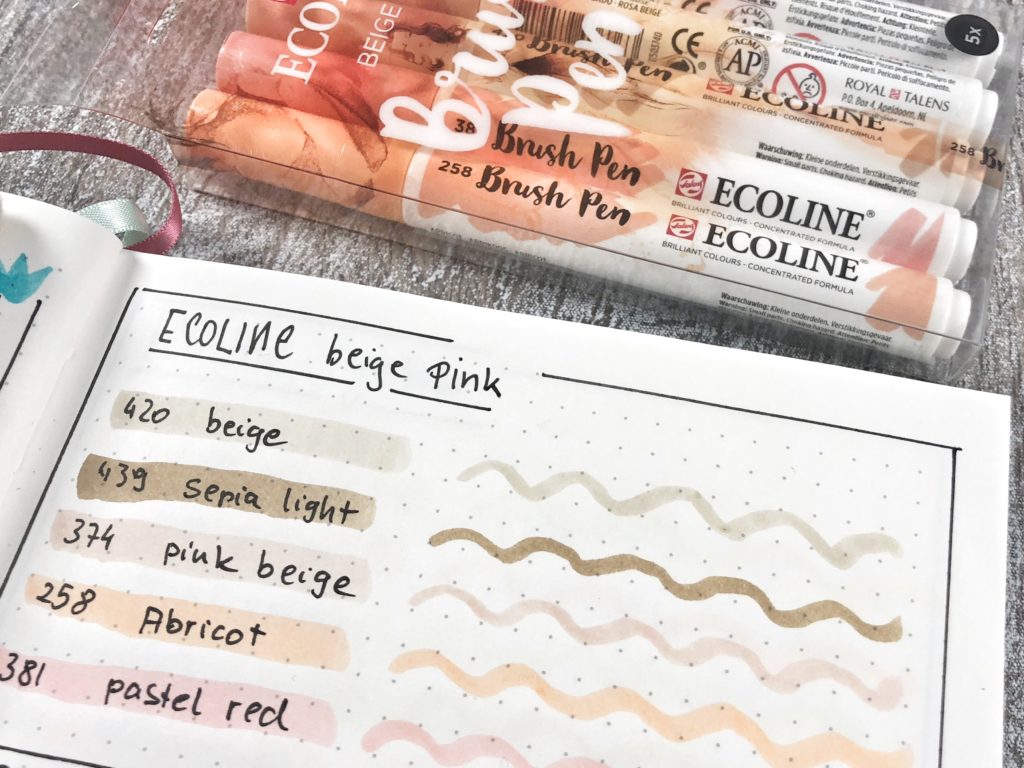 ROSA BEIGE
5x
ECO
BEIGE
Brush
Pen
Brush Pen
CE
ACMI
AP
ROYAL TALENS
P.O. Box 4, Apeldoorn, NL
ECOLINE
BRILLIANT COLOURS - CONCENTRATED FORMULA
258
Waarschuwing: Kleine onderdelen, Verstikkingsgevaar.
Warning: Small parts. Choking hazard. Attention: Petits
38
Brush Pen
Talens
ECOLINE®
BRILLIANT COLOURS - CONCENTRATED FORMULA
258 Brush Pen
Talens
ECOLINE®
BRILLIANT COLOURS - CONCENTRATED FORMULA
Waarschuwing: Kleine onderdelen, Verstikkingsgevaar.
Warning: Small parts. Choking hazard. Attention: Petits
ECOLINE beige pink
420 beige
439 sepia light
374 pink beige
258 Abricot
381 pastel red